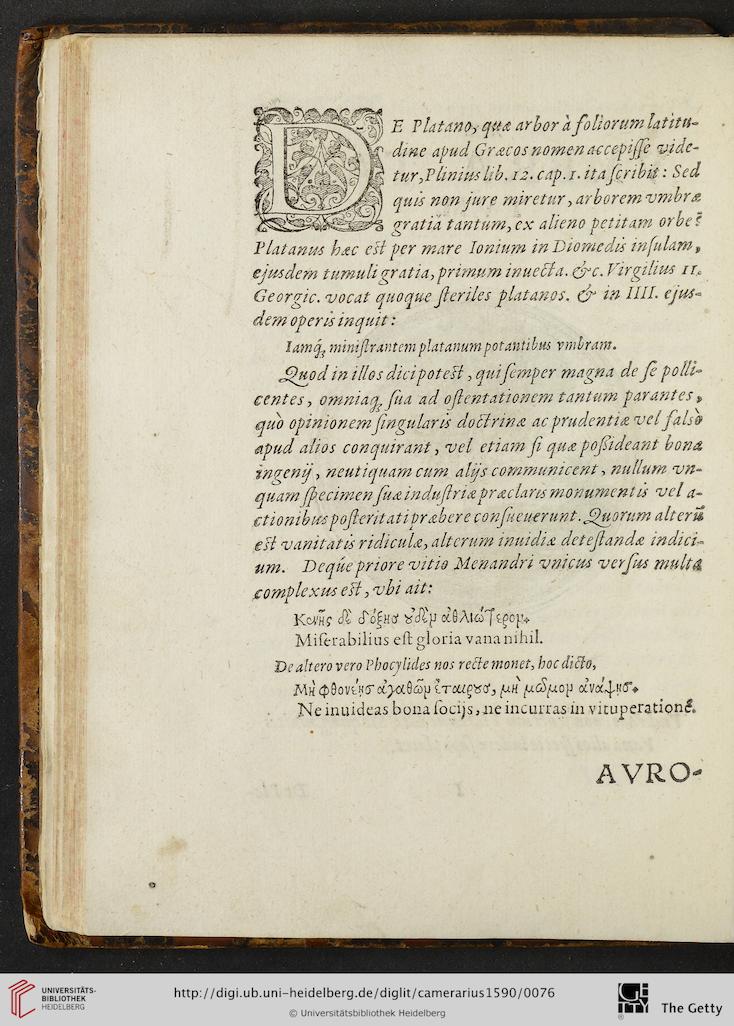 DE Platano, quæ arbor à foliorum latitu-
dine apud Græcos nomen accepiſſe vide-
tur, Plinius lib. 12. cap. 1. ita ſcribit: Sed
quis non jure miretur, arborem vmbræ
gratiā tantum, ex alieno petitam orbe?
Platanus hæc est per mare Ionium in Diomedis inſulam,
ejusdem tumuli gratia, primum inuecta. &c. Virgilius 11.
Georgic. vocat quoque ſteriles platanos. & in IIII. ejus-
dem operis inquit:
Iamq́; miniſtrantem platanum potantibus vmbram.
Quod in illos dici potest, qui ſemper magna de ſe polli-
centes, omniaq; ſua ad oſtentationem tantum parantes,
quò opinionem ſingularis doctrinæ ac prudentiæ vel falsò
apud alios conquirant, vel etiam ſi quæ poßideant bona
ingenij, neutiquam cum alijs communicent, nullum vn-
quam ſpecimen ſuæ induſtriæ præclaris monumentis vel a-
ctionibus poſteritati præbere conſueuerunt. Quorum alterū
est vanitatis ridiculæ, alterum inuidiæ deteſtandæ indici-
um. Deq́ue priore vitio Menandri vnicus verſus multa
complexus est, vbi ait:
Κενῆς δὲ δόξης οὐδὲν ἀθλιώτερον.
Miſerabilius eſt gloria vana nihil.
De altero vero Phocylides nos recte monet, hoc dicto,
Μὴ φθονέης ἀγαθῶν ἑταίρους, μὴ μῶμον ἀνάψης.
Ne inuideas bona ſocijs, ne incurras in vituperationē.
AVRO-
UNIVERSITÄTS-
BIBLIOTHEK
HEIDELBERG
http://digi.ub.uni-heidelberg.de/diglit/camerarius1590/0076
© Universitätsbibliothek Heidelberg
The Getty